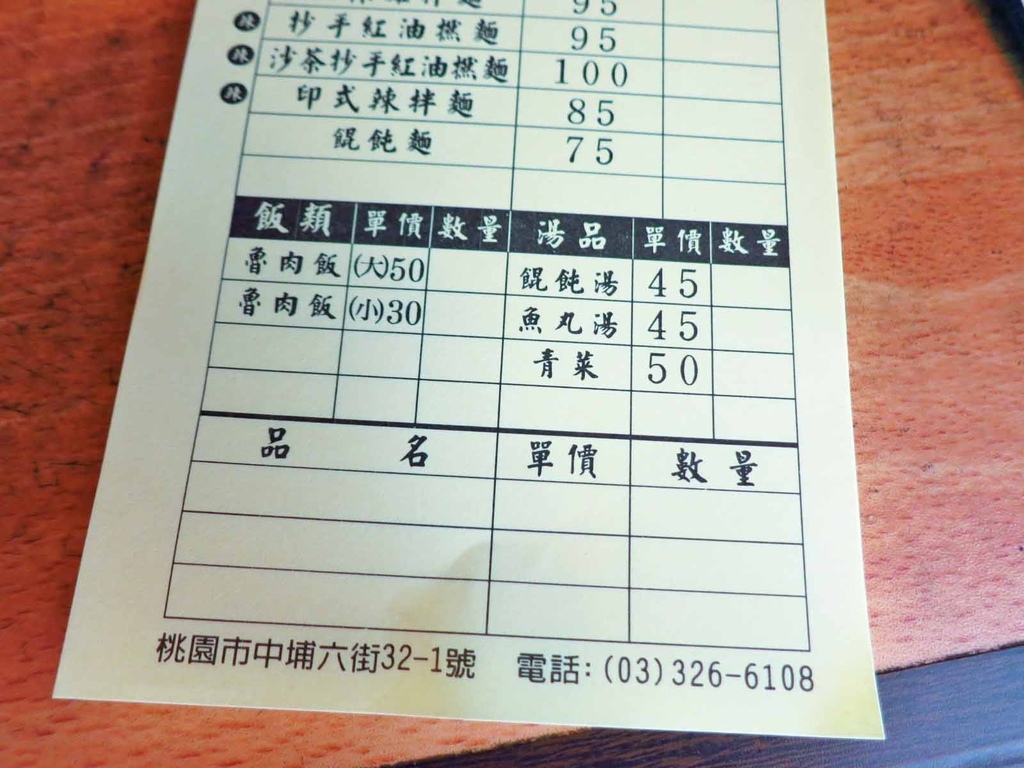 拌麵 95
辣 抄手紅油撚麵 95
辣 沙茶抄手紅油撚麵 100
辣 印式辣拌麵 85
餛飩麵 75
飯類 單價 數量 湯品 單價 數量
魯肉飯 (大)50 餛飩湯 45
魯肉飯 (小)30 魚丸湯 45
青菜 50
品名 單價 數量
桃園市中埔六街32-1號 電話:(03)326-6108